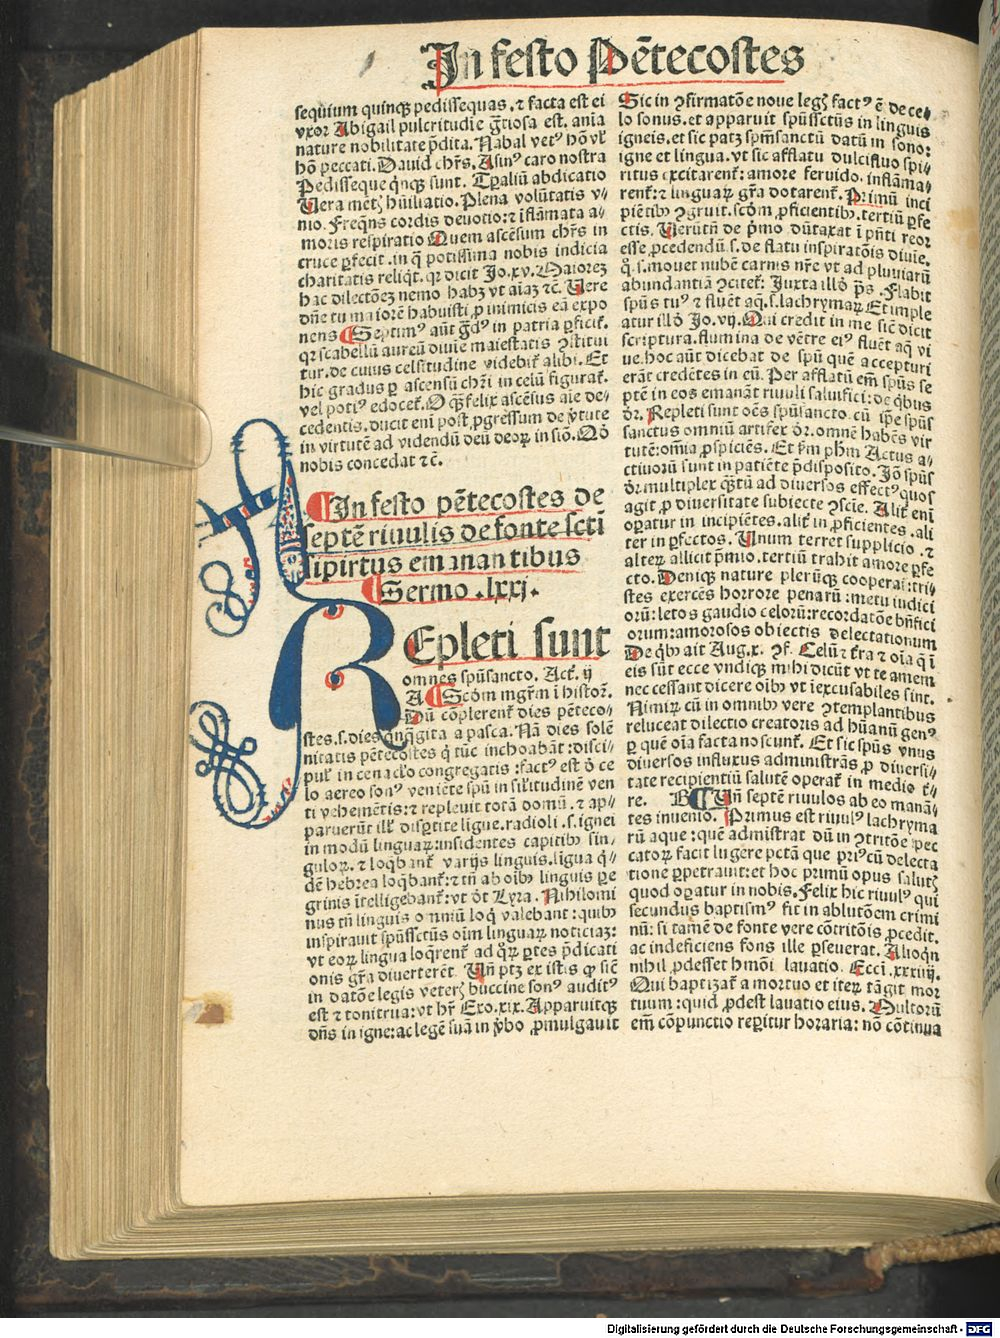 In festo Pētecostes
sequium quinqꝫ pedissequas. ⁊ facta est ei
vxor Abigail pulcritudīe gr̄tiosa est. aīa
nature nobilitate p̄dita. Nabal vetꝰ hō vl̓
hō peccati. Dauid chr̄s. Asinꝰ caro nostra
Pedisseque q̄nqꝫ sunt. Tp̄aliū abdicatio
Uera mētꝭ hūiliatio. Plena volūtatis v⸗
nio. Freq̄ns cordis deuotio: ⁊ īflāmata a⸗
moris respiratio Quem ascēsum chr̄s in
cruce ꝑfecit. in q̄ potissima nobis indicia
charitatis reliq̄t. qꝛ dicit Jo. xv. Maiorez
hac dilectōez nemo habꝫ vt aīaz ⁊c̄. Uere
dn̄e tu maiorē habuisti, ꝓ inimicis eā expo
nens ¶ Septimꝰ aūt gd̓ꝰ in patria ꝑficit̄.
qꝛ scabellū aureū diuīe maiestatis ꝯstitui
tur. de cuius celsitudine videbit̄ alibi. Et
hic gradus ꝑ ascensū chr̄i in celū figurat̄.
vel potiꝰ edocet̄. O qꝫ felix ascēsus aīe de⸗
cedentis. ducit enī post ꝓgressum de v̓tute
in virtutē ad videndū deū deoꝝ in siō. Qō
nobis concedat ⁊c̄.
¶ In festo pētecostes de
septē riuulis de fonte sctī
spiritus emanantibus
¶ Sermo .lxxj.
Repleti sunt
omnes spūsancto. Act̄. ij
A ¶ Scōm mgr̄m ī histor̄.
Dū cōplerent̄ dies pēteco⸗
stes. s. dies q̄nq̄gīta a pasca. Nā dies solē
nitatis pētecostes q̄ tūc inchoabāt: disci⸗
puli̓ in cenaclo congregatis: factꝰ est d̓ ce
lo aereo sonꝰ veniēte spū in sil̓itudinē ven
ti vehemētis: ⁊ repleuit totā domū. ⁊ ap⸗
paruerūt ill̓ disꝑtite ligue. radioli .s. ignei
in modū linguaꝝ: insidentes capitibꝰ sin⸗
guloꝝ. ⁊ loq̄bant̄ varijs linguis. ligua q̄⸗
dē hebrea loq̄bant̄: ⁊ tn̄ ab oībꝰ linguis ꝑe
grinis ītelligebant̄: vt dt̄ Lyra. Nihilomi
nus tn̄ linguis omniū loq̄ valebant: quibꝰ
inspirauit spūssctūs oīm linguaꝝ noticiaz:
vt eoꝝ lingua loq̄rent̄ ad q̄ꝝ ꝑtes p̄dicati
onis gr̄a diuerterēt. Uñ ptꝫ ex istis ꝙ sic̄
in datōe legis veterꝭ buccine sonꝰ auditꝰ
est ⁊ tonitrua: vt hr̄ Exo. xix. Apparuitqꝫ
dn̄s in igne: ac legē suā in v̓bo ꝓmulgauit
Sic in ꝯfirmatōe noue legꝭ factꝰ ē de ce⸗
lo sonus. et apparuit spūssctūs in linguis
igneis. et sic patꝫ spm̄sanctū datū in sono:
igne et lingua. vt sic afflatu dulcifluo spi⸗
ritus excitarent̄: amore feruido. inflāma⸗
rent̄: ⁊ linguaꝝ gr̄a dotarent̄. Primū inci
piētibꝰ ꝯgruit. scōm ꝓficientibꝰ. tertiū ꝑfe
ctis. Uerūtn̄ de p̄mo dūtaxat ī pn̄ti reor
esse ꝓcedendū .s. de flatu inspiratōis diuīe.
q̓ .s. mouet nubē carnis nr̄e vt ad pluuiarū
abundantiā ꝯcitet̄: Juxta illḋ pṡ. Flabit
spūs tuꝰ ⁊ fluēt aq̄. s. lachrymaꝝ Et imple
atur illḋ Jo. vij. Qui credit in me sic̄ dicit
scriptura. flumina de vētre eiꝰ fluēt aq̄ vi
ue. hoc aūt dicebat de spū quē accepturi
erāt credētes in eū. Per afflatū em̄ spūs se
ptē in eos emanāt riuuli salutifici: de q̄bus
dr̄. Repleti sunt oēs spūsancto. cū ip̄e spūs
sanctus omniū artifex dr̄. omnē habēs vir
tutē: omīa ꝓspiciēs. Et s̓m ph̄m Actus a⸗
ctiuorū sunt in patiēte p̄disposito. Jō spūs
dr̄ multiplex q̄tū ad diuersos effectꝰ quos
agit ꝓ diuersitate subiecte ꝯscīe. Alit̄ enī
oꝑatur in incipiētes. alit̄ in ꝓficientes. ali
ter in ꝑfectos. Unum terret supplicio. ⁊
alteꝝ allicit p̄mio. tertiū trahit amore ꝑfe
cto. Deniqꝫ nature plerūqꝫ cooperat̄: tri⸗
stes exercēs horrore penarū: metu iudicī
orū: letos gaudio celorū: recordatōe bn̄fici
orum: amorosos obiectis delectationum
De q̄bꝰ ait Aug. x. ꝯf. Celū ⁊ t̄ra ⁊ oīa q̄ ī
eis sūt ecce vndiqꝫ mihi dicūt vt te amem
nec cessant dicere oībꝰ vt īexcusabiles sint.
Nimiꝝ cū in omnibꝰ vere ꝯtemplantibus
reluceat dilectio creatoris ad hūanū genꝰ
ꝑ quē oīa facta noscunt̄. Et sic spūs vnus
diuersos influxus administrās ꝓ diuersi⸗
tate recipientiū salutē operat̄ in medio t̄⸗
re. B ¶ Uñ septē riuulos ab eo manā⸗
tes inuenio. Primus est riuulꝰ lachryma
rū aque: quē admīstrat dū in ꝯtritōe pec
catoꝝ facit lugere pctā que priꝰ cū delecta
tione ꝑpetrauit: et hoc primū opus salutꝭ
quod oꝑatur in nobis. Felix hic riuulꝰ qui
secundus baptismꝰ fit in ablutōem crimi
nū: si tamē de fonte vere cōtritōis ꝓcedit.
ac indeficiens fons ille ꝑseuerat. Alioq̄n
nihil ꝓdesset hm̄oi lauatio. Ecci. xxxiiij.
Qui baptizat̄ a mortuo et iteꝝ tāgit mor
tuum: quid ꝓdest lauatio eius. Multorū
em̄ cōpunctio reperitur horaria: nō cōtinua
Digitalisierung gefördert durch die Deutsche Forschungsgemeinschaft - DFG